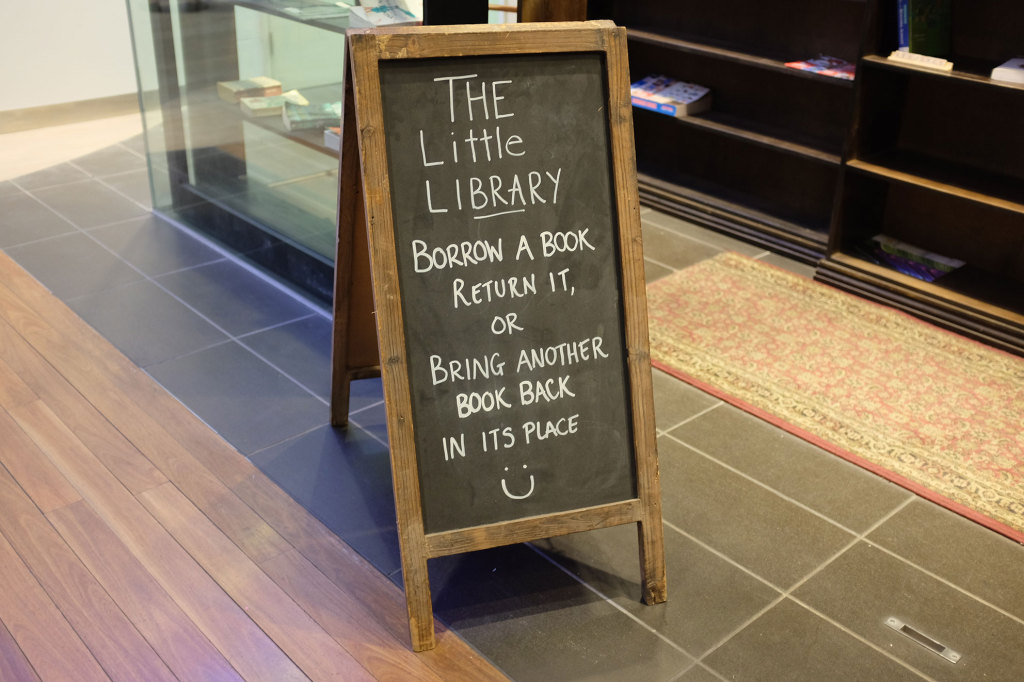 THE
Little
LIBRARY
BORROW A BOOK
RETURN IT,
OR
BRING ANOTHER
BOOK BACK
IN ITS PLACE